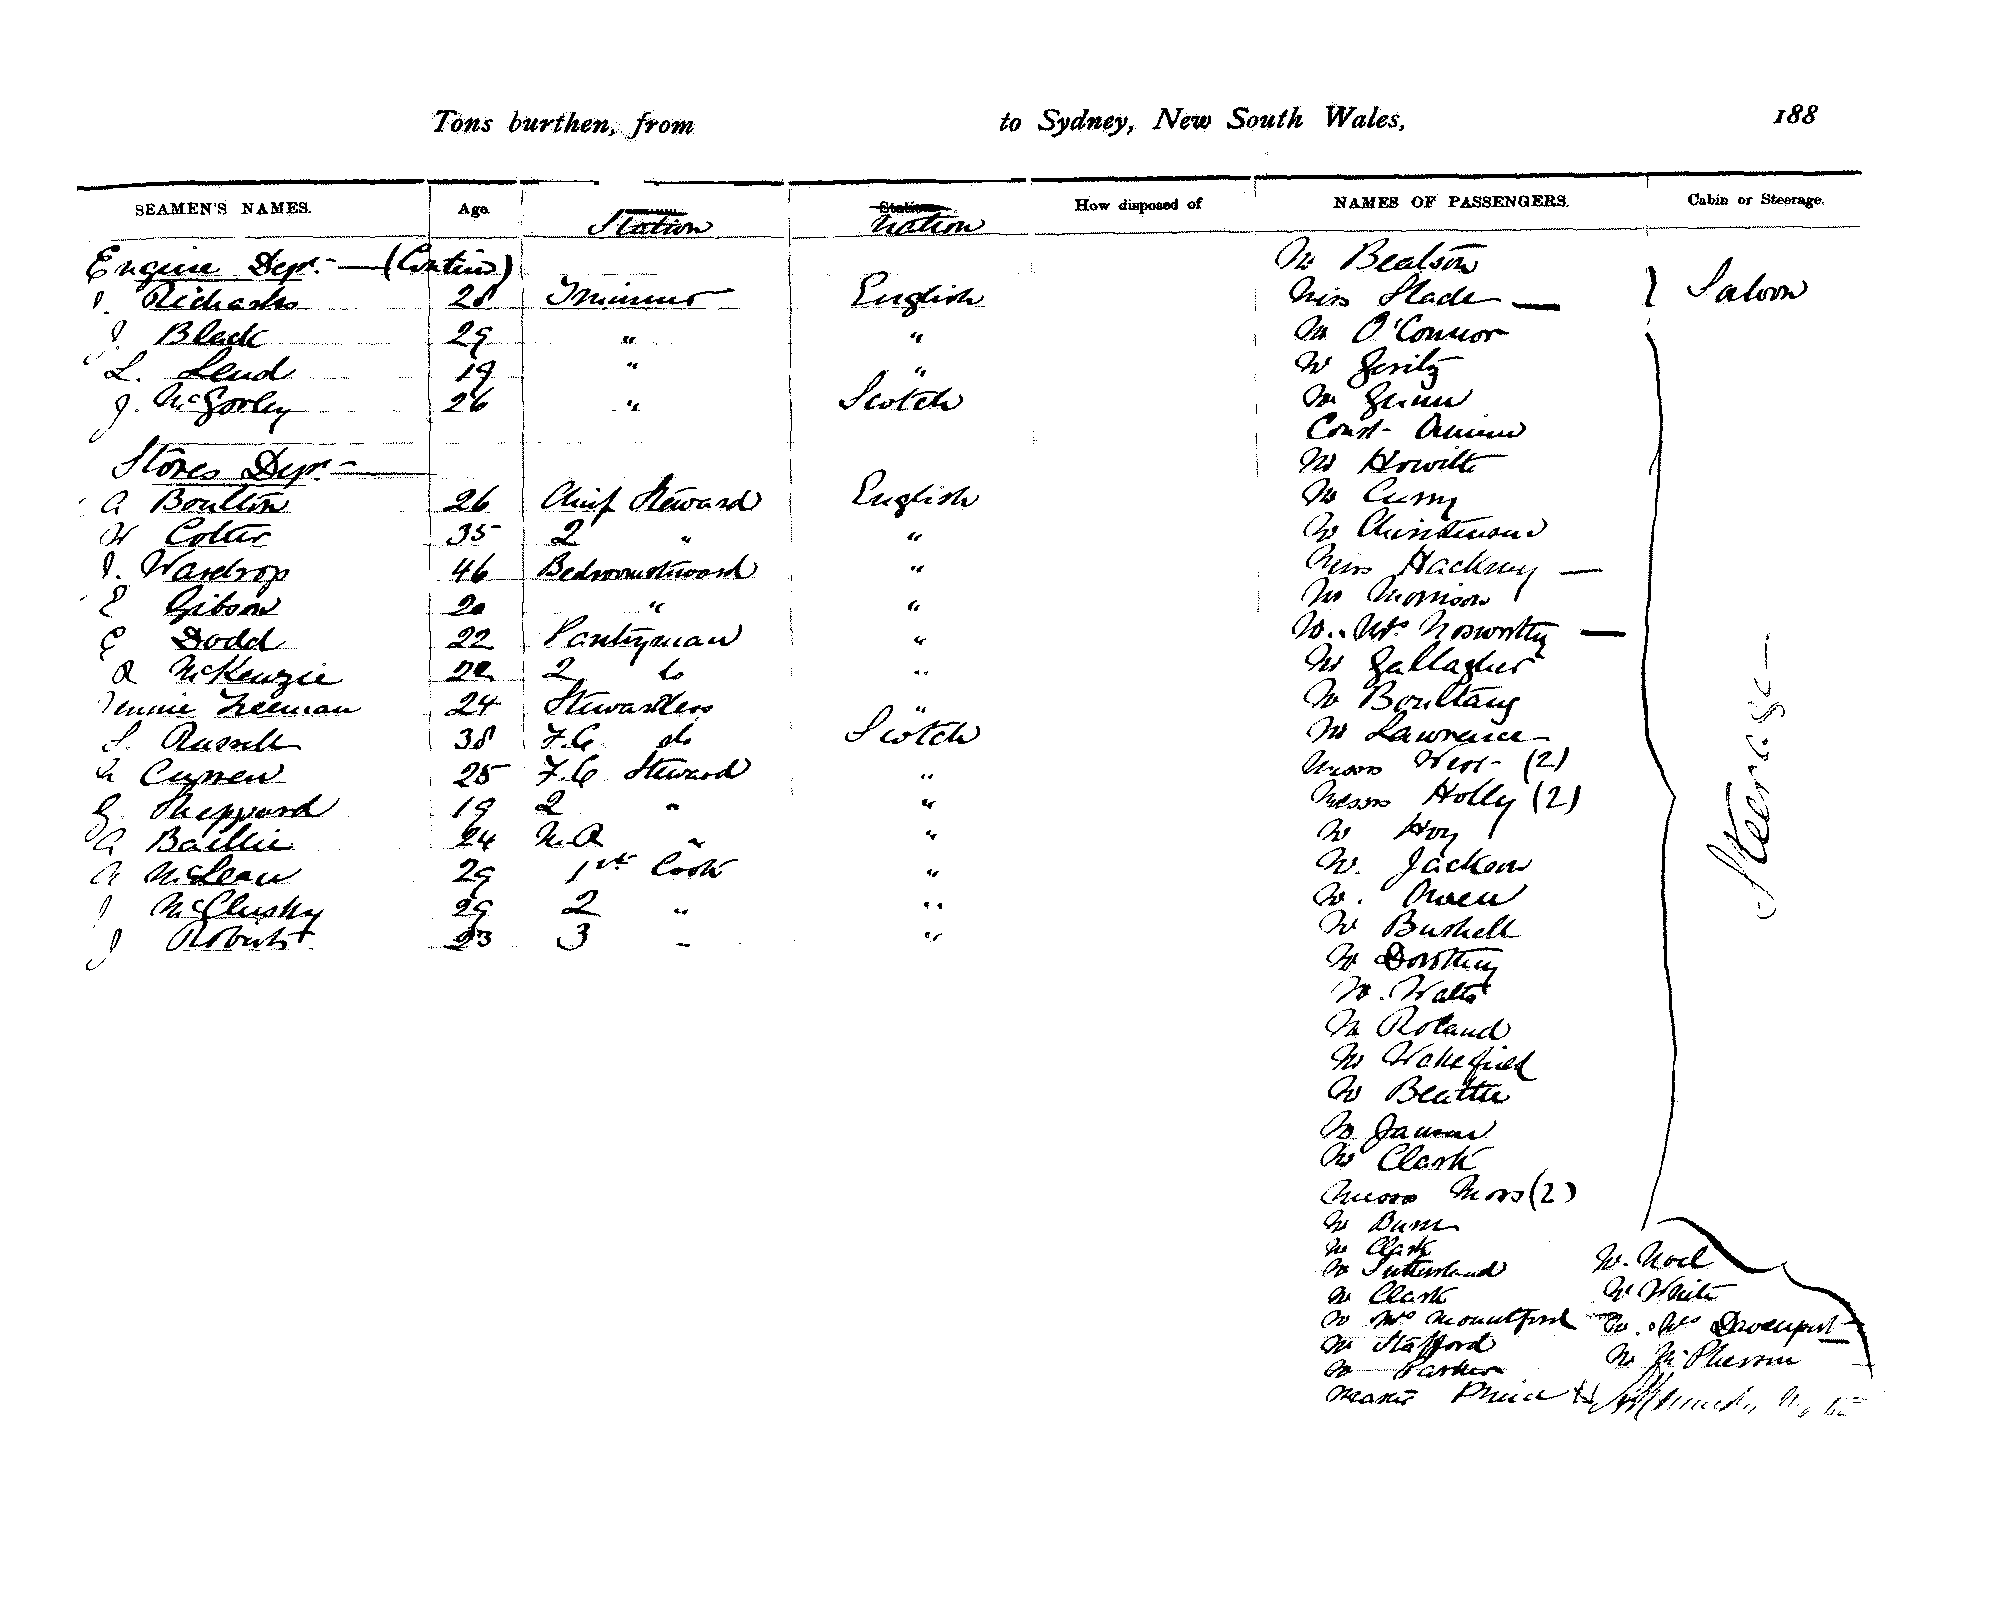 Tons burthen, from to Sydney, New South Wales, 188
SEAMEN'S NAMES. Age. Station Nation How disposed of NAMES OF PASSENGERS. Cabin or Steerage.
Engine Dept. — (Contin)
J. Richards 28 Trimmer English
J. Black 29 " "
L. Lend 19 " "
J. McGorley 26 " Scotch
Stores Dept. —
A Boulton 26 Chief Steward English
W Colter 35 2 " "
J. Wardrop 46 Bedroomsteward "
E Gibson 20 " "
E Dodd 22 Pantryman "
R McKenzie 22 2 do "
Jennie Freeman 24 Stewardess "
S. Russell 38 F.C do Scotch
Curren 25 F.C Steward "
G. Sheppard 19 2 " "
A Baillie 24 "
A McLean 29 1st Cook "
J McClusky 29 2 " "
J Roberts 23 3 "
Mr Beatson
Miss Slade — Saloon
Mr O'Connor
Mr Geritz
Mr Gunn
Const-
Mr Howitt
Mr Curry
Mr Christmas
Miss Hackney —
Mr Morrison
Mr. Mrs Nosworthy —
Mr Gallagher
Mr Boultang
Mr Lawrence
Misses West (2)
Messrs Holly (2)
Mr Hoy
Mr. Jackson
Mr. Owen
Mr Bushell
Mr Dorothy
Mr. Watts
Mr Roland
Mr Wakefield
Mr Beattie
Mr
Mr Clark
Misses Moss (2)
Mr Burn
Mr Clark
Mr Sutherland
Mr Clark
Mr Mrs Mountford
Mr Stafford
Mr Parker
Master
Mr. Noel
Mr White
Mr. Mrs Davenport
Mr McPherson
Steerage